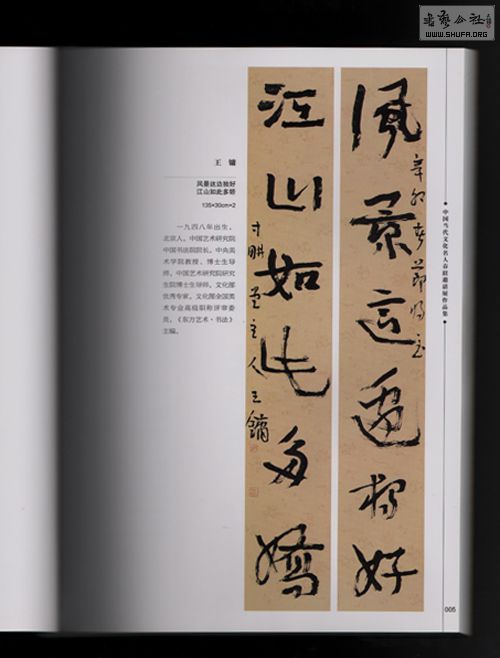 书艺公社
WWW.SHUFA.ORG
王 镛
风景这边独好
江山如此多娇
135×30cm×2
一九四八年出生,
北京人。中国艺术研究院
中国书法院院长,中央美
术学院教授、博士生导
师,中国艺术研究院研究
生院博士生导师,文化部
优秀专家,文化部全国美
术专业高级职称评审委
员,《东方艺术·书法》
主编。
風景這邊独好
辛卯春節將至
江山如此多嬌
寸耕堂主人王鏞
中国当代文化名人春联邀请展作品集
005